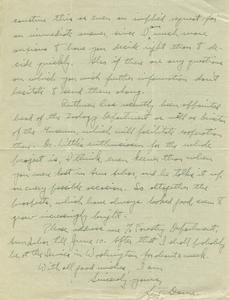 construe this as even an implied request for
an immediate answer, since I am much more
anxious to have you decide right than to de-
cide quickly. Also if there are any questions
on which you wish further information don't
hesitate to send them along.
Ruthven has recently been appointed
head of the Zoology Department as well as Director
of the Museum, which will facilitate cooperation
there. Dr. Little's enthusiasm for the whole
project is, I think, even keener than when
you were last in Ann Arbor, and he talks it up
on every possible occasion. So altogether the
prospects, which have always looked good, seem to
grow increasingly bright.
Please address me Forestry Department,
Ann Arbor till June 10. After that I shall probably
be at the Service in Washington for about a week.
With all good wishes, I am
Sincerely yours,
Dana